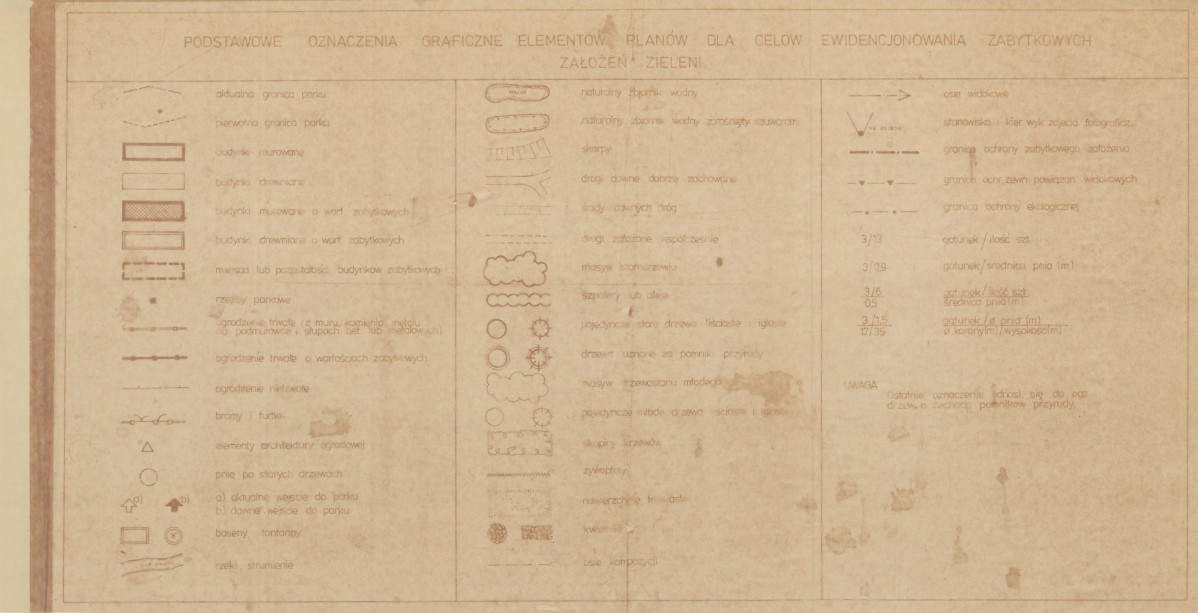 PODSTAWOWE OZNACZENIA GRAFICZNE ELEMENTÓW PLANÓW DLA CELÓW EWIDENCJONOWANIA ZABYTKOWYCH
ZAŁOŻEŃ ZIELENI
aktualna granica parku
pierwotna granica parku
budynki murowane
budynki drewniane
budynki murowane o wart. zabytkowych
budynki drewniane o wart. zabytkowych
miejsca lub pozostałości budynków zabytkowych
rzeźby parkowe
ogrodzenie trwałe (z muru, kamienia, metalu
na podmurówce i słupach bet. lub metalowych)
ogrodzenie trwałe o wartościach zabytkowych
ogrodzenie nietrwałe
bramy i furtki
elementy architektury ogrodowej
pnie po starych drzewach
a) b) a) aktualne wejście do parku
b) dawne wejście do parku
baseny, fontanny
rzeki, strumienie
naturalny zbiornik wodny
naturalny zbiornik wodny zarośnięty szuwarami
skarpy
drogi dawne dobrze zachowane
ślady dawnych dróg
drogi założone współcześnie
masyw starodrzewiu
szpalery lub aleje
pojedyncze stare drzewa liściaste i iglaste
drzewa uznane za pomniki przyrody
masyw drzewostanu młodego
pojedyncze młode drzewa liściaste i iglaste
skupiny krzewów
żywopłoty
nawierzchnie trawiaste
osie kompozycji
osie widokowe
stanowisko i kier. wyk. zdjęcia fotograficz.
granica ochrony zabytkowego założenia
granica ochr. zewn. powiązań widokowych
granica ochrony ekologicznej
3/13 gatunek/ilość szt.
3/0,9 gatunek/średnica pnia (m)
3/6 gatunek/ilość szt.
0,5 średnica pnia (m)
3/1,5 gatunek/ø pnia (m)
17/35 ø korony(m)/wysokość(m)
UWAGA
Ostatnie oznaczenie odnosi się do egz.
drzew o cechach pomników przyrody.